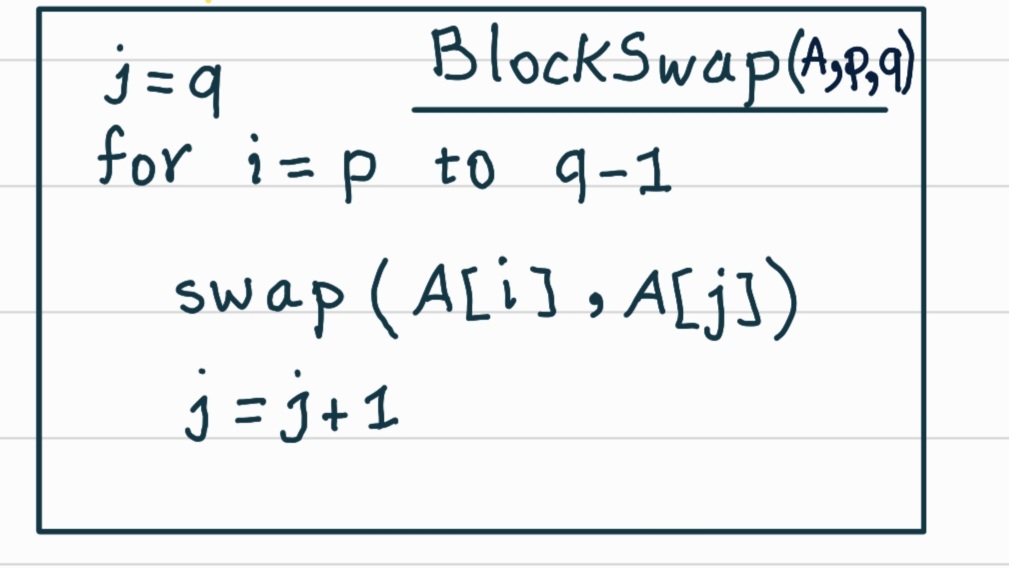 BlockSwap(A,p,q)
j=q
for i=p to q-1
swap(A[i],A[j])
j=j+1